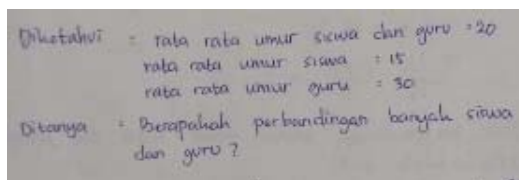 Diketahui : rata rata umur siswa dan guru = 20
rata rata umur siswa : 15
rata rata umur guru : 30
Ditanya : Berapakah perbandingan banyak siswa
dan guru ?